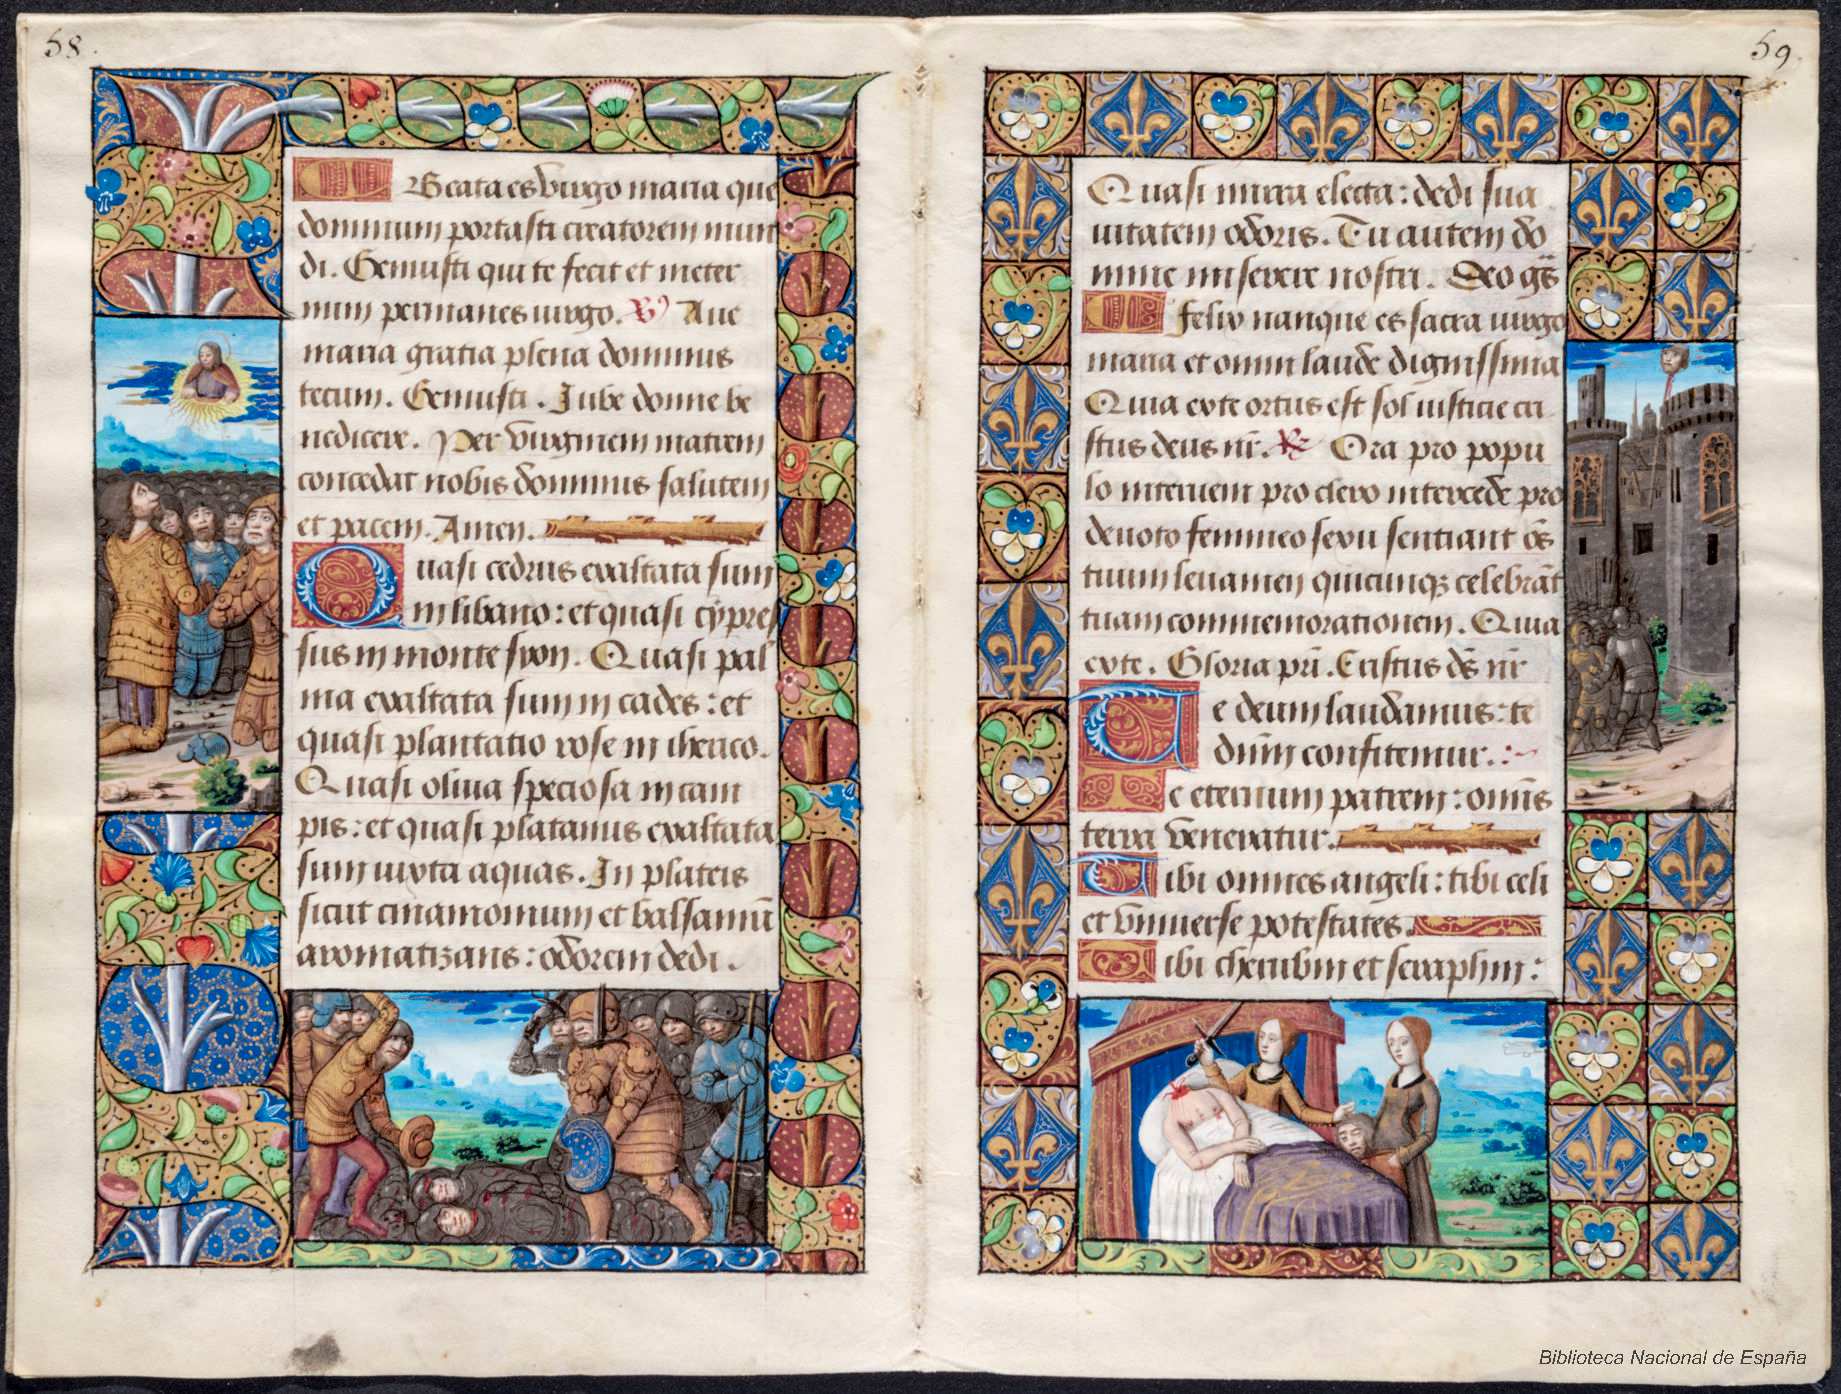 58.
Beata es virgo maria que
dominum portasti creatorem mun
di. Genuisti qui te fecit et ineter
num permanes virgo. Ꝟ Aue
maria gratia plena dominus
tecum. Genuisti. Iube donne be
nedicere. Per virginem matrem
concedat nobis dominus salutem
et pacem. Amen.
Quasi cedrus exaltata sum
in libano: et quasi cypres
sus in monte syon. Quasi pal
ma exaltata sum in cades: et
quasi plantatio rose in iherico.
Quasi oliua speciosa in cam
pis: et quasi platanus exaltata
sum iuxta aquas. In plateis
sicut cinamomum et balsamū
aromatizans: odorem dedi.
59.
Quasi mirra electa: dedi sua
uitatem odoris. Tu autem do
mine miserere nostri. Deo gr̄s
felix nanque es sacra uirgo
maria et omni laude dignissima
Quia exte ortus est sol iusticie cri
stus deus nr̄. ℟ Ora pro popu
lo interueni pro clero intercede pro
deuoto femineo sexu sentiant oēs
tuum leuamen quicunqꝫ celebrāt
tuam commemorationem. Quia
exte. Gloria pri. Cristus ds̄ nr̄
Te deum laudamus: te
dnm̄ confitemur.
Te eternum patrem: omnis
terra veneratur.
Tibi omnes angeli: tibi celi
et vniuerse potestates.
Tibi cherubin et seraphin:
Biblioteca Nacional de España